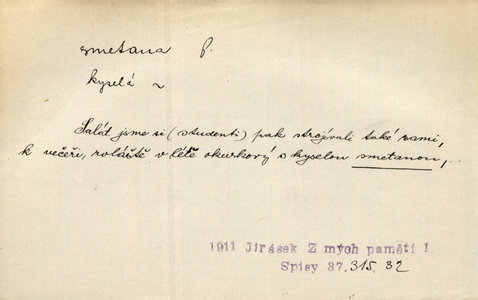 smetana f.
kyselá ~
Salát jsme si (studenti) pak strojívali také sami,
k večeři, zvláště v létě okurkový s kyselou smetanou,..
1911 Jirásek Z mých pamětí 1.
Spisy 37.315.32